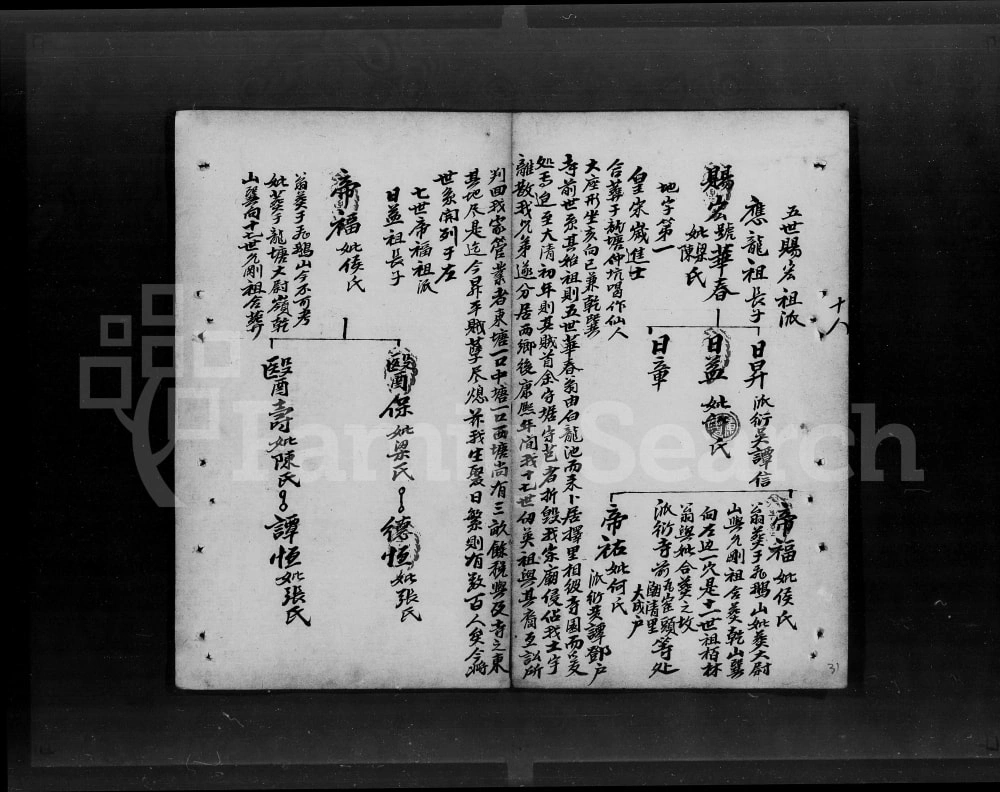 五世賜宏祖派
應龍祖長子
賜宏號華春
妣梁氏
陳氏
地字第一
皇宋歲進士
合葬于塘仲坑喝作仙人
大座形坐亥向巳兼乾巽
寺前世系其始祖則五世華春翁由白龍池而来卜居擇里相彼寺園而爰
処焉迨至大清初年則其賊首余字据守芭者折毀我宗廟侵佔我土宇
離散我兄弟遂分居西鄉後康熙年间我十七世俊英祖與其裔互訟所
判回我家管業者東塘一口中塘一口西塘尚有三畝餘税與及寺之東
其地尽是迄今昇平賊孽尽熄养我生聚日繁則有数百人矣今將
世系開列于左
日昇 派衍吴譚信
日益 妣氏
日章
帝福 妣侯氏
翁葬于飛鵝山妣葬大尉
山與九剛祖合葬乾山巽
向左边一穴是十一世祖栢林
翁與妣合葬之坟
派衍寺前崀頭等处
潮清里
大成户
帝祐 妣何氏
派衍英譚鄧户
十八
31
七世帝福祖派
日益祖長子
帝福 妣侯氏
翁葬于飛鵝山今不可考
妣葬于龍塘大尉嶺乾
山巽向十七世九剛祖合葬
毉保 妣梁氏
德恒 妣張氏
毉壽 妣陳氏
譚恒 妣張氏
FamilySearch